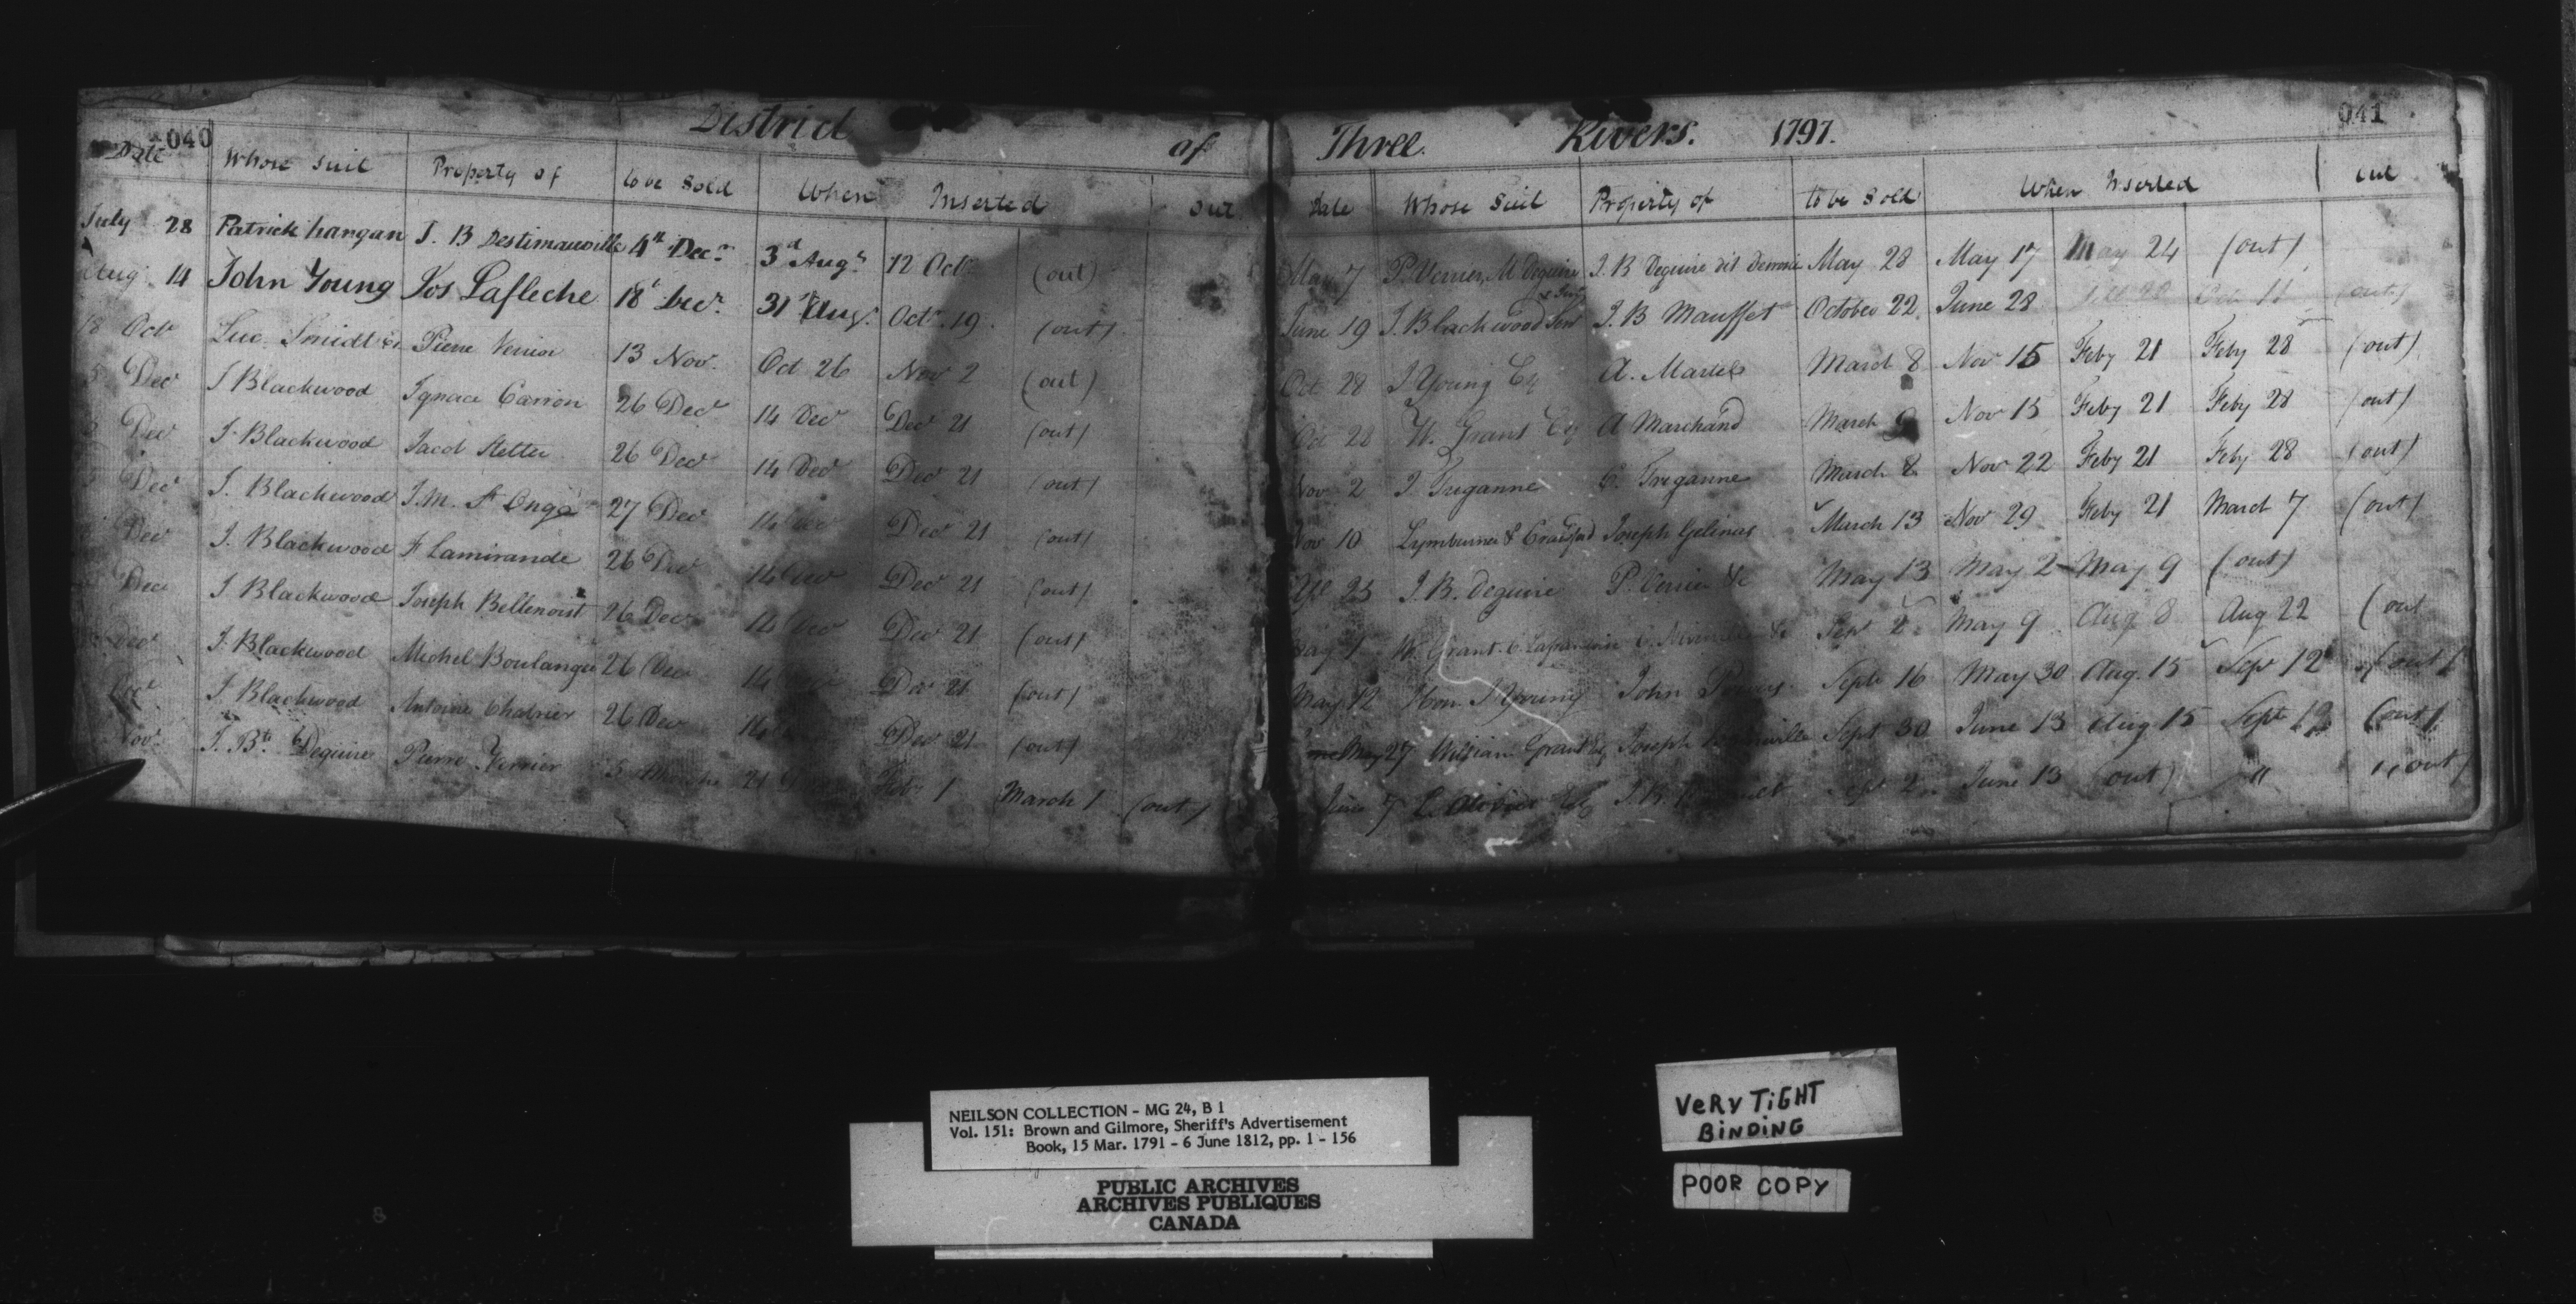 040
District of
Date Whose Suit Property of to be Sold When Inserted out
July 28 Patrick J. B Destimauville 4th Decr 3d Augt 12 Oct (out)
Aug 14 John Young Jos Lafleche 18t Decr. 31t Aug. Octr. 19. (out)
18 Oct Luc. Smidt Pierre 13 Nov. Oct 26 Nov 2 (out)
Dec J Blackwood Ignace Carrion 26 Dec 14 Dec Dec 21 (out)
Dec J. Blackwood Jacob Stetter 26 Dec 14 Dec Dec 21 (out)
Dec J. Blackwood J. M. St Onge 27 Dec 14 Dec Dec 21 (out)
Dec J. Blackwood F Lamirande 26 Dec 14 Dec Dec 21 (out)
Dec J Blackwood Joseph Bellenoist 26 Dec 14 Dec Dec 21 (out)
Dec J. Blackwood Michel Boulanger 26 Dec 14 Dec 21 (out)
Dec J. Blackwood Antoine 26 Dec 14 Dec 21 (out)
Nov. J. Bte Deguire Pierre Verrier 21 Feby 1 March 1 (out)
041
Three Rivers. 1797.
Date Whose Suit Property of to be Sold When Inserted out
May 7 P. Verrier, M Deguire J. B Deguire dit May 28 May 17 May 24 (out)
June 19 J. Blackwood J. B Mauffet October 22 June 28 Oct 11 (out)
Oct 28 J Young Esq A. Martel March 8 Nov 15 Feby 21 Feby 28 (out)
Oct 28 W. Grant Esq A Marchand March 9 Nov 15 Feby 21 Feby 28 (out)
Nov 2 J. Treganne C. Treganne March 8 Nov 22 Feby 21 Feby 28 (out)
Nov 10 Lymburner & Crawford Joseph Gelinas March 13 Nov 29 Feby 21 March 7 (out)
25 J. B. Deguire P. Verrier &c May 13 May 2 May 9 (out)
May 1 W. Grant. &c Sepr 2 May 9 Aug 8 Aug 22 (out
May 12 Hon. J Young John Powers Septr 16 May 30 Aug. 15 Sepr 12 (out)
May 27 William Grant Esq Joseph Sept 30 June 13 Aug. 15 Sept 12 (out)
June 7 Esq J. B. 2 June 13 (out) " " out)
NEILSON COLLECTION - MG 24, B 1
Vol. 151: Brown and Gilmore, Sheriff's Advertisement
Book, 15 Mar. 1791 - 6 June 1812, pp. 1 - 156
PUBLIC ARCHIVES
ARCHIVES PUBLIQUES
CANADA
VeRy TiGHT
BiNDiNG
POOR COPY